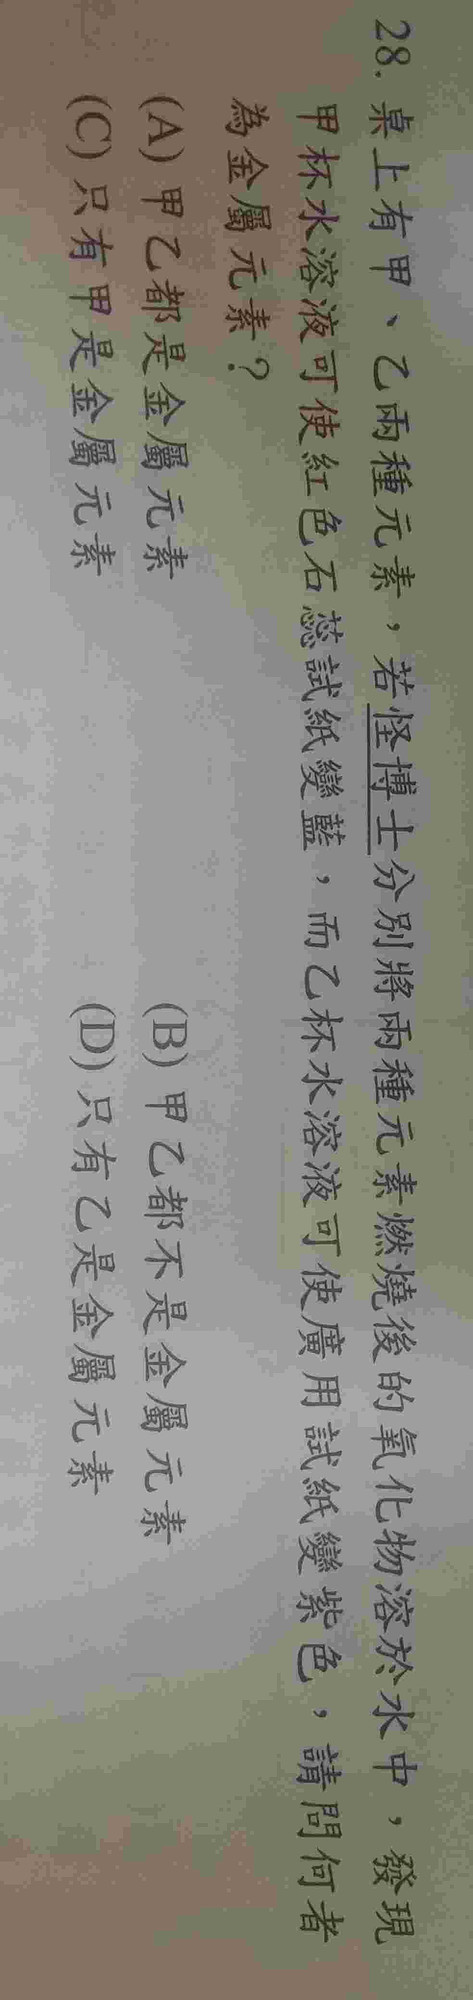 28. 桌上有甲、乙兩種元素，若怪博士分別將兩種元素燃燒後的氧化物溶於水中，發現
甲杯水溶液可使紅色石蕊試紙變藍，而乙杯水溶液可使廣用試紙變紫色，請問何者
為金屬元素？
(A) 甲乙都是金屬元素 (B) 甲乙都不是金屬元素
(C) 只有甲是金屬元素 (D) 只有乙是金屬元素